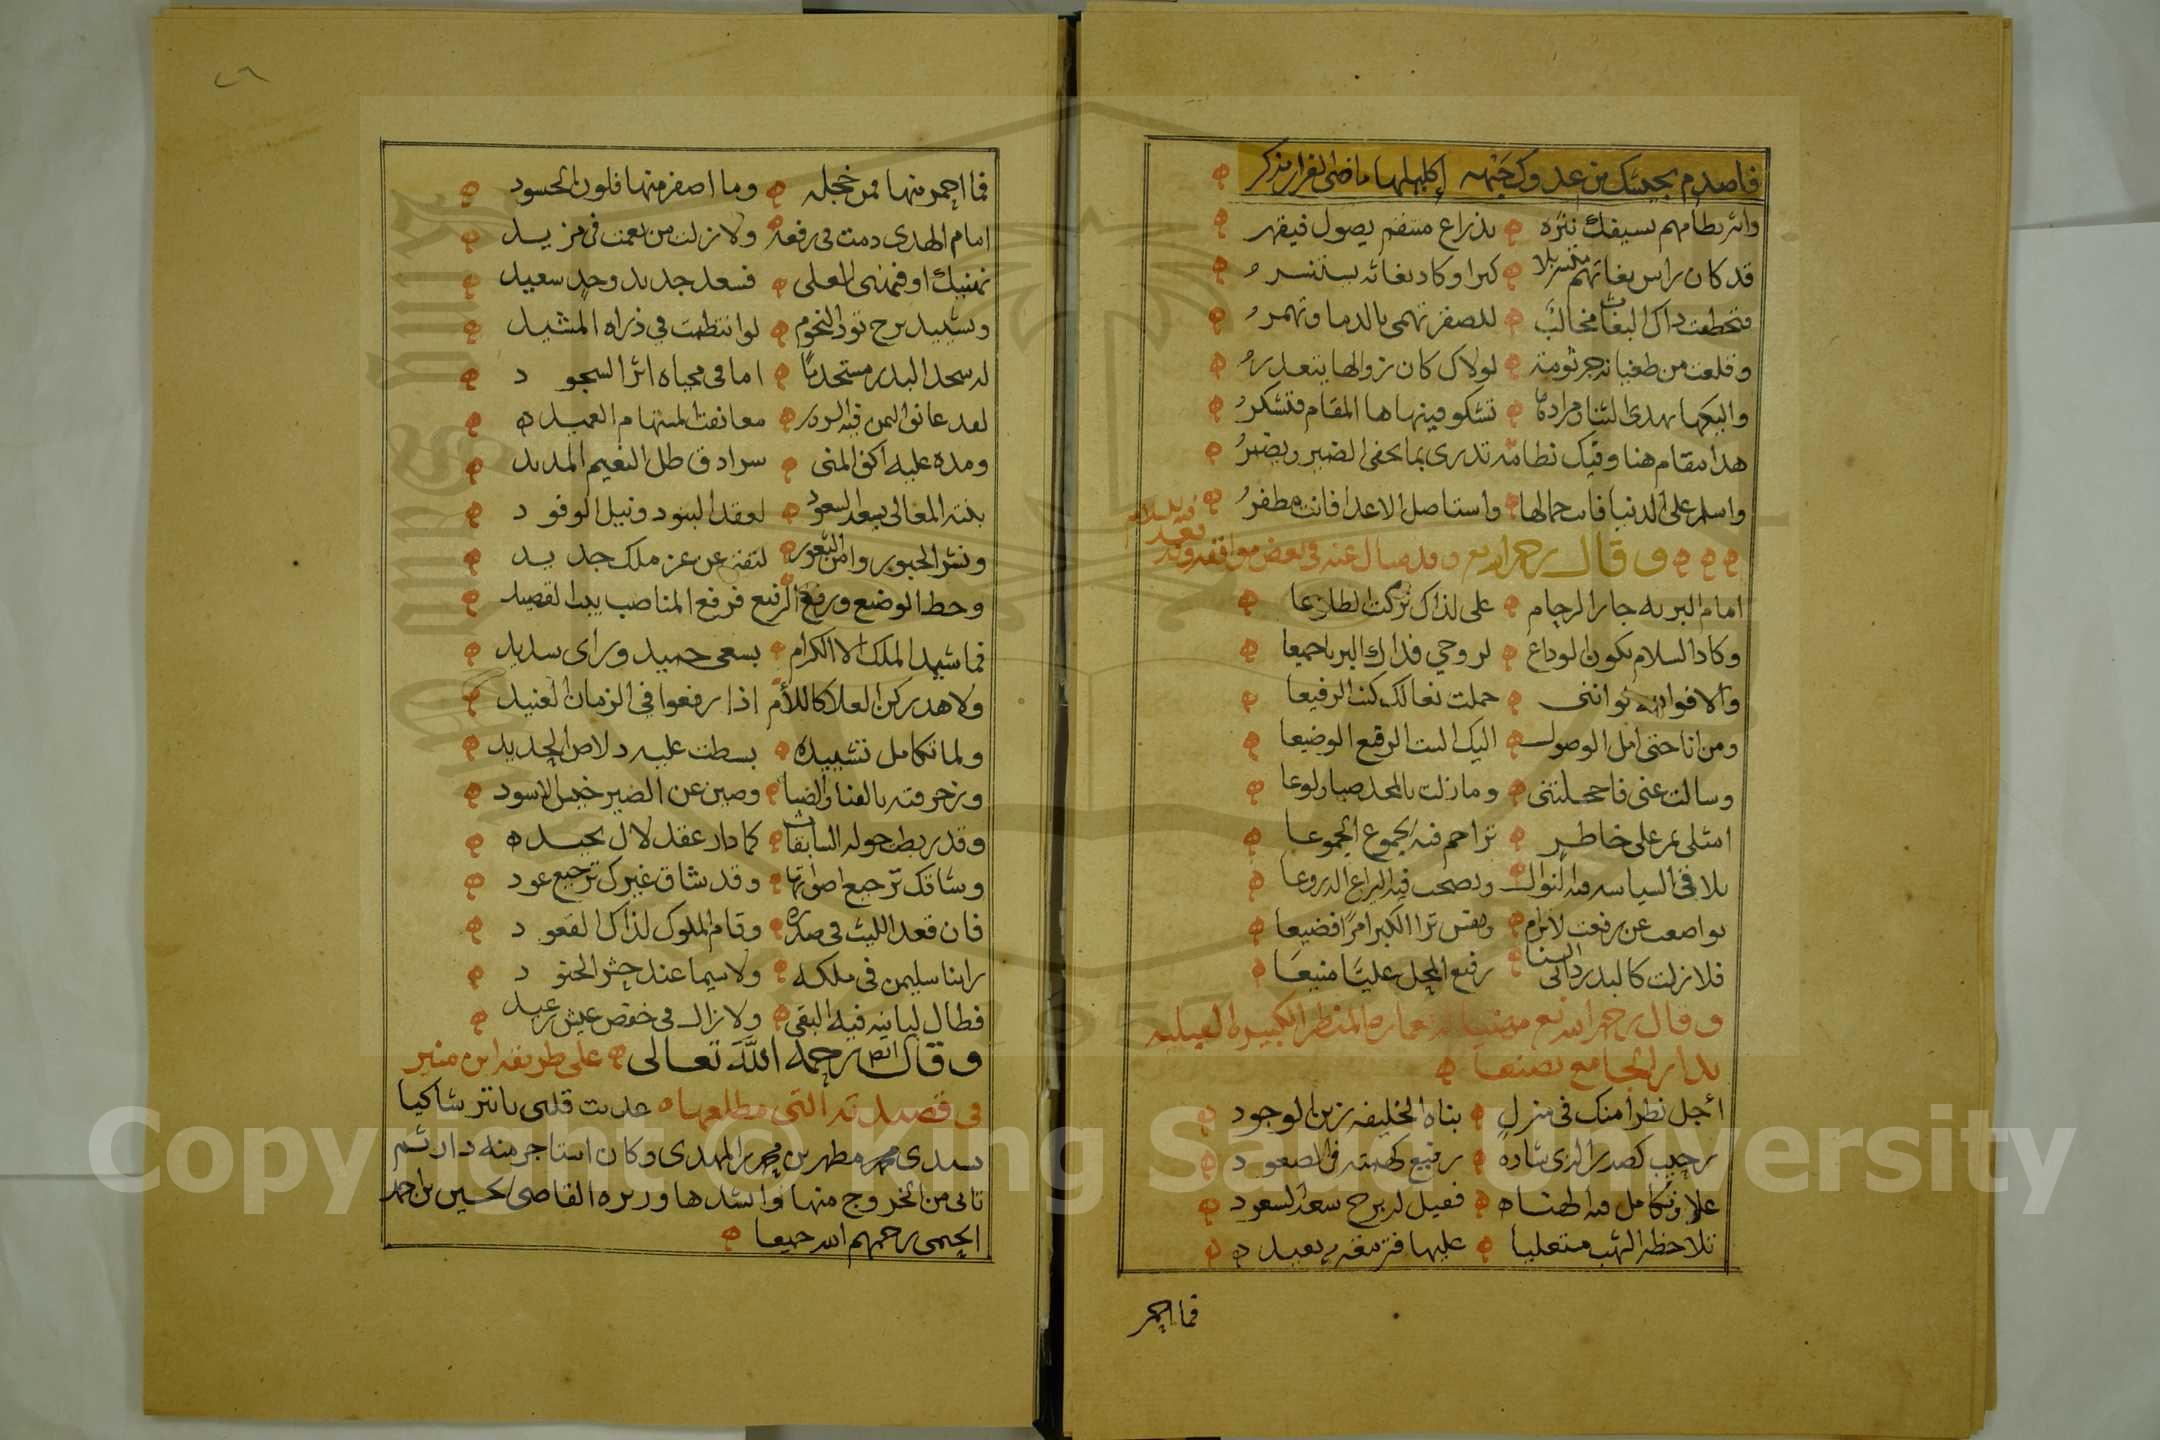 فاصدم بجيشك من عدوك جبهه إكليلها ماضي الغرار مذكر
وانثر نظامهم بسيفك نثره بذراع منتقم يصول فيقهر
قد كان راس بغاتهم متسربلا كبرا وكاد بغاثه يستنسر
فتخطفت ذاك البغاث مخالب للصقر تهمي بالدما وتهمر
وقلعت من طغيانه جرثومة لولاك كان زوالها يتعذر
واليكها يهدي الثنا تشكو فيهاها المقام فتشكر
هذا مقام هنا وفيك نظامه تدري بما يخفي الضمير ويضمر
واسلم على الدنيا فانت جمالها واستاصل الاعدا فانت مظفر
وقال رحمه الله وقد مال عنه في بعض مواقفه
امام البريه جار الرجام على لذاك تركت الطلوعا
وكاد السلام يكون الوداع لروحي فداك البرايا جميعا
والا فوالله لو انني حملت نعالك كنت الرفيعا
ومن انا حتى امل الوصول اليك الست الرقيع الوضيعا
وسالت عني فاخجلتني وما زلت بالمجد صبا ولوعا
امثلي يمر على خاطر تزاحم فيه الجموع الجموعا
يلاقي السياسه فيه النوال ويصحب فيه اليراع الدروعا
تواضعت عن رفعت لا ترام ترا الكبر امرا فضيعا
فلا زلت كالبدر داني السنا رفيع المحل عليا منيعا
وقال رحمه الله تع مهنيا له بعمارة المنظر الكبيره العليه
بدار الجامع بصنعا
أجل نظرا منك في منزل بناه الخليفه زين الوجود
رحيب كصدر الذي شاده رفيع كهمته في الصعود
علا وتكامل فيه الهناه فقيل له برج سعد السعود
تلاحظه الشهب منعليا عليها فترمقه من بعيد
فما احمر
فما احمر منها فمن خجله وما اصفر منها فلون الحسود
امام الهدى دمت في رفعة ولا زلت من نعمت في مزيد
نهنيك اوفى المعلى فسعد جديد وجد سعيد
وتشييد برج تود النجوم لو انتظمت في ذراه المشيد
له سجد البدر مستحديا اما في محياه اثر السجود
لقد عانق اليمن فيه السرور معانقة المستهام العميد
ومده عليه اكف المنى سرادق ظل النعيم المديد
بنته المعالي بسعد السعود لعقد البنود ونيل الوفود
ونشر الحبور وامن الثغور لتفتر عن عز ملك جديد
وحط الوضيع ورفع الرفيع فرفع المناصب بيت القصيد
فما شيد الملك الا الكرام بسعي حميد وراي سديد
ولا هد ركن العلا كاللأم اذا رفعوا في الزمان العنيد
ولما تكامل تشييده بسطت عليه دلاص الحديد
وزخرفته بالقنا والضبا وصين عن الضير خيس الاسود
وقد ربطت حوله السابقات كما دار عقد لال بجيد
وشاقك ترجيع اصواتها وقد شاق غيرك ترجيع عود
فان قعد الليث في صدره وقام الملوك لذاك القعود
راينا سليمن في ملكه ولا سيما عند حشر الجنود
فطال ليانيه فيه البقى ولا زال في خفض عيش رغيد
وقال ايضا رحمه الله تعالى على طريقة ابن منير
في قصيدته التي مطلعها عذبت قلبي يا تتر شاكيا
سيدي محمد مطهر بن محمد بن المهدي وكان استاجر منه دار ثم
تانى من الخروج منها وانشدها وزيره القاضي الحسين بن احمد
الحيمي رحمهم الله جميعا